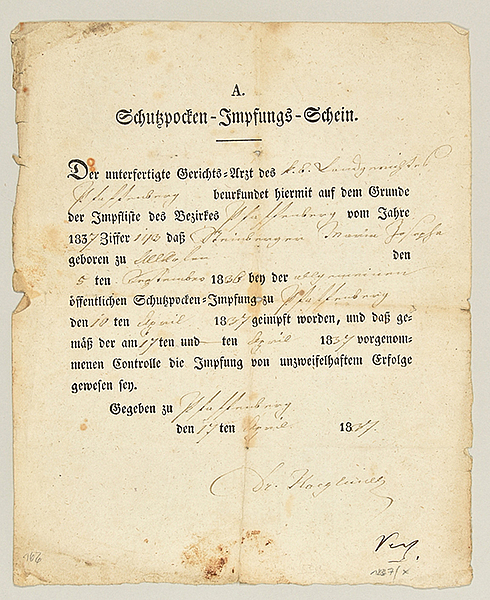 A.
Schutzpocken-Impfungs-Schein.
Der unterfertigte Gerichts-Arzt des k. b. Landgerichtes
Pfaffenberg beurkundet hiermit auf dem Grunde
der Impfliste des Bezirkes Pfaffenberg vom Jahre
1837 Ziffer 143 daß Steinberger Maria Josepha
geboren zu den
5 ten September 1836 bey der allgemeinen
öffentlichen Schutzpocken-Impfung zu Pfaffenberg
den 10 ten April 1837 geimpft worden, und daß ge-
mäß der am 17 ten und — ten April 1837 vorgenom-
menen Controlle die Impfung von unzweifelhaftem Erfolge
gewesen sey.
Gegeben zu Pfaffenberg
den 17 ten April 1837.
Dr.
162
1837/x